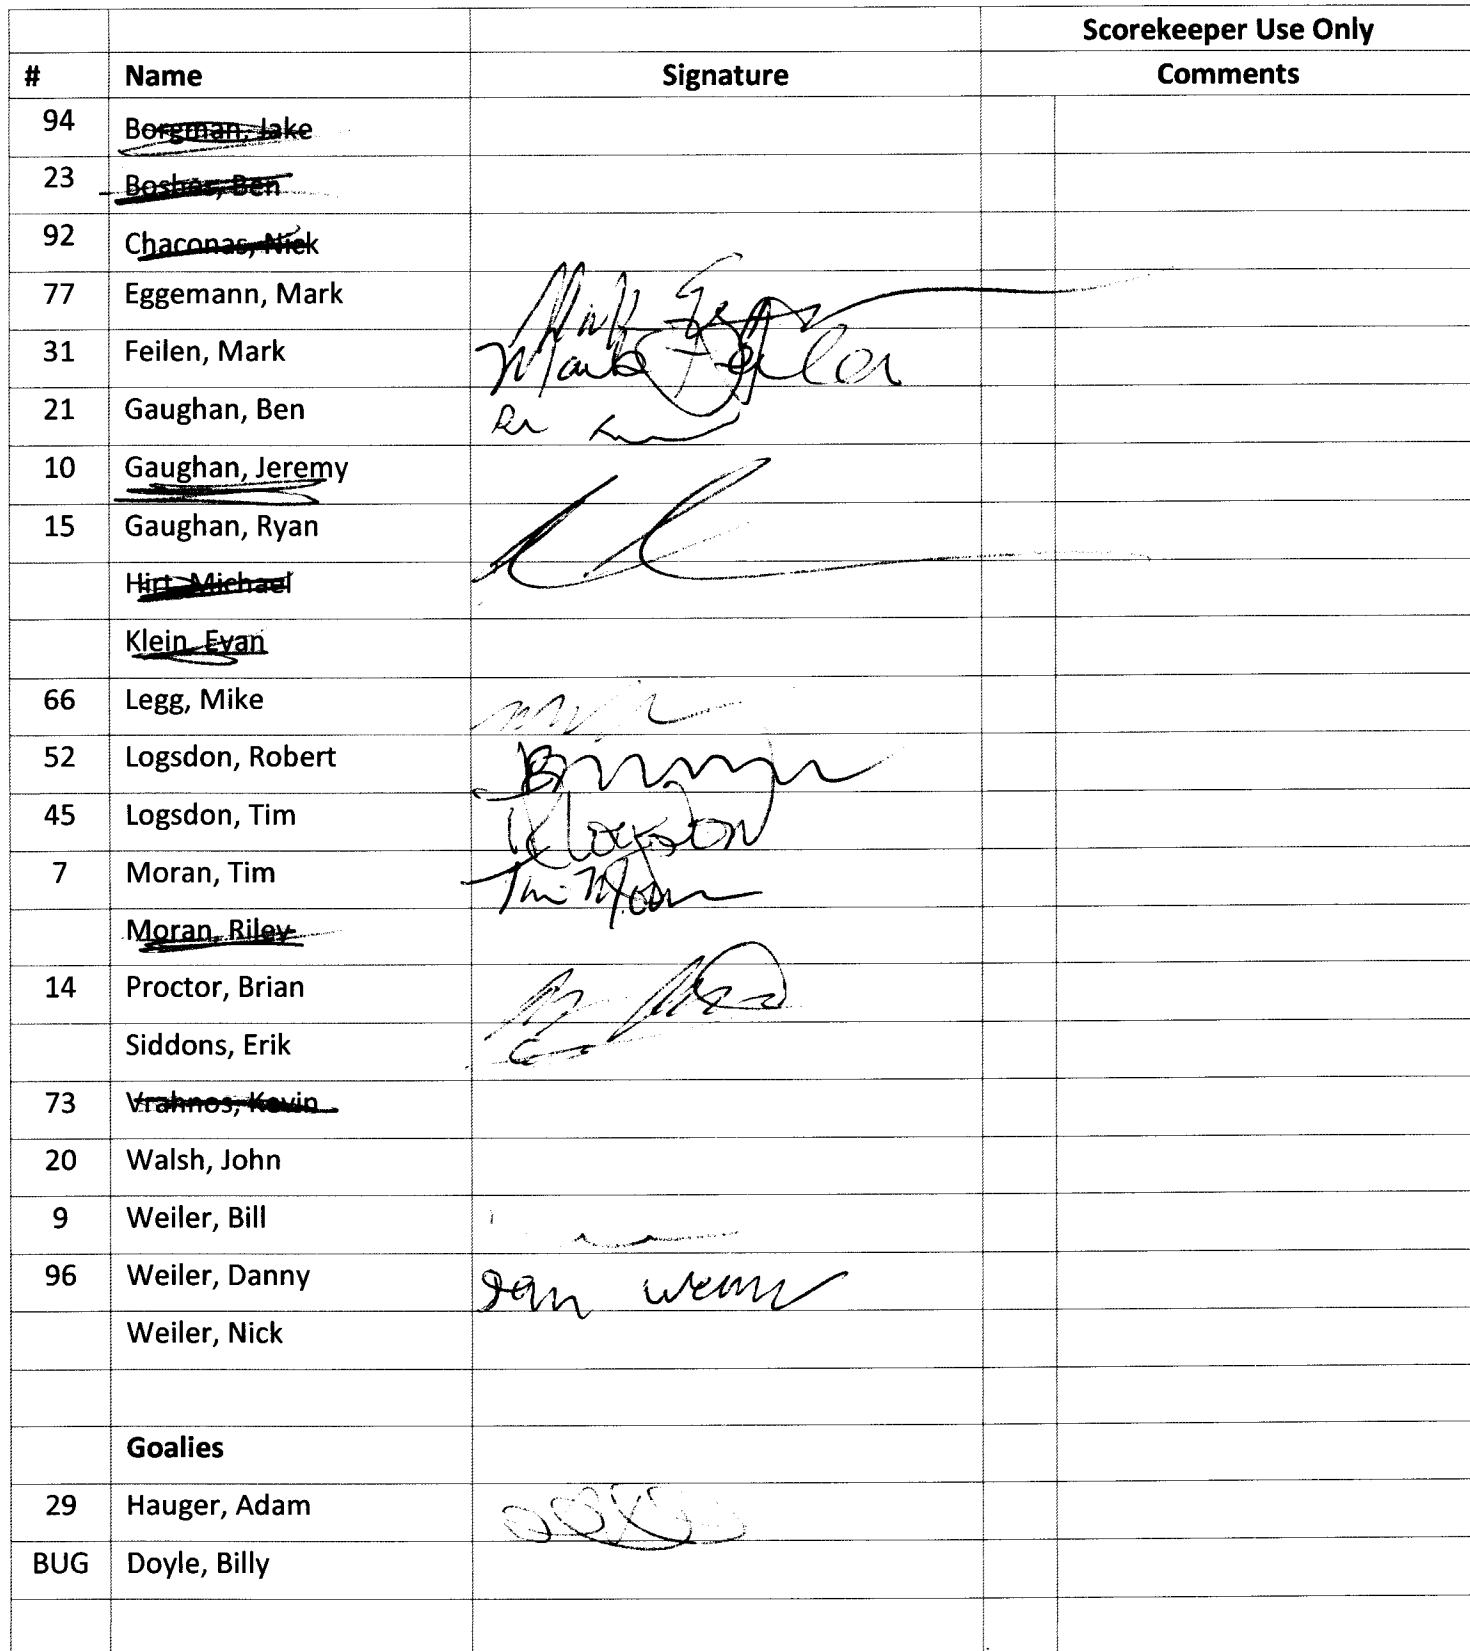 Scorekeeper Use Only
# Name Signature Comments
94 Borgman, Jake
23 Ben
92 Chaconas, Nick
77 Eggemann, Mark Mark
31 Feilen, Mark Mark Feilen
21 Gaughan, Ben
10 Gaughan, Jeremy
15 Gaughan, Ryan
Hirt, Michael
Klein, Evan
66 Legg, Mike
52 Logsdon, Robert
45 Logsdon, Tim T Logsdon
7 Moran, Tim Tim Moran
Moran, Riley
14 Proctor, Brian
Siddons, Erik
73 Vrahnos, Kevin
20 Walsh, John
9 Weiler, Bill
96 Weiler, Danny Dan
Weiler, Nick
Goalies
29 Hauger, Adam
BUG Doyle, Billy